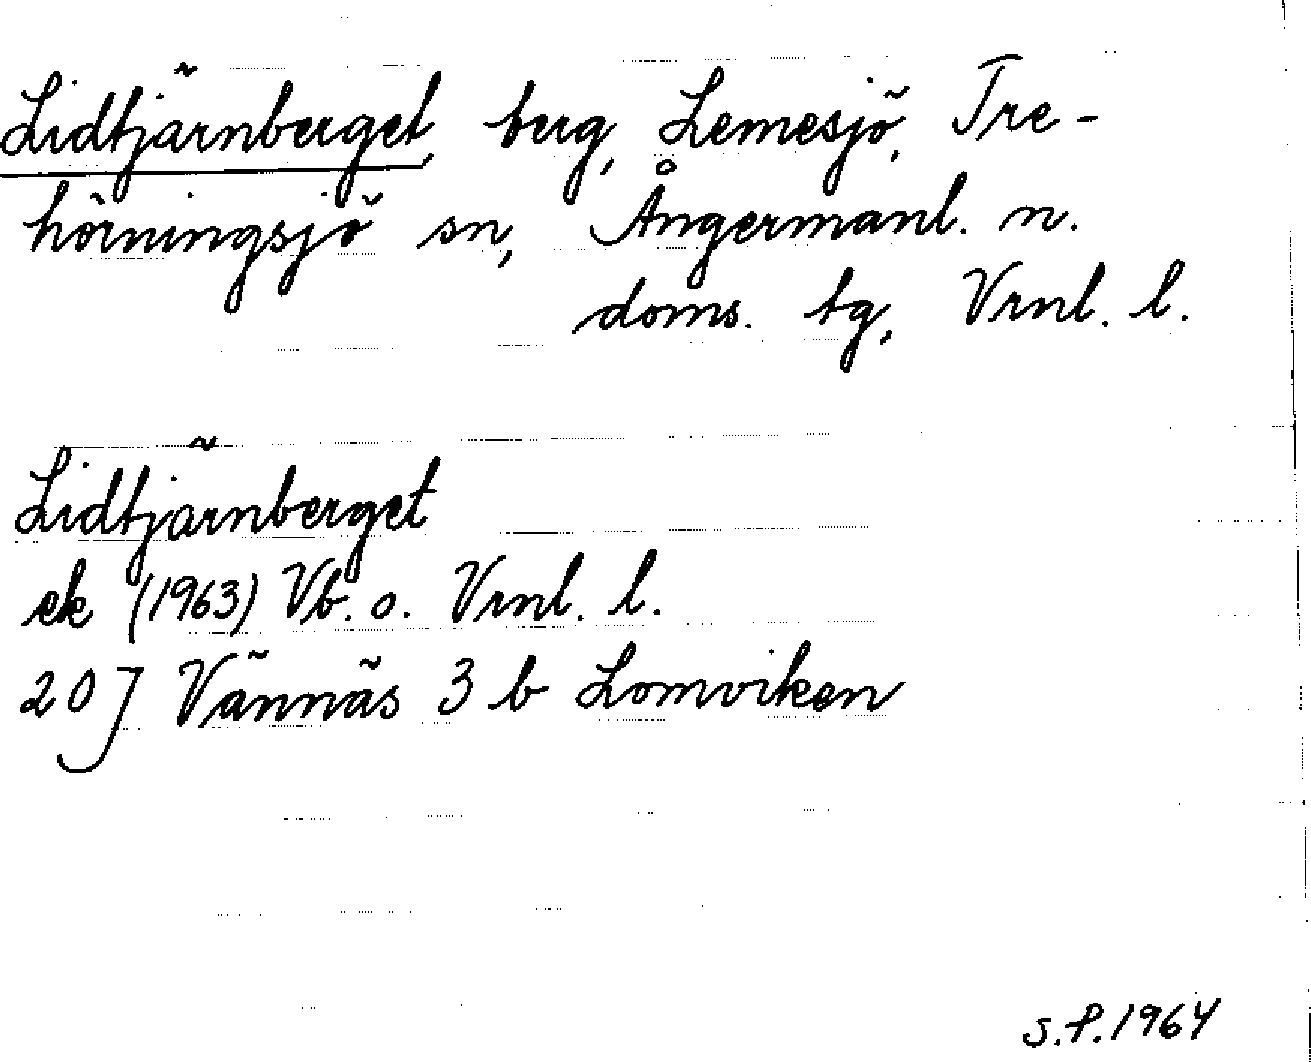 Lidtjärnberget, berg, Lemesjö, Tre-
hörningsjö sn, Ångermanl. n.
doms. tg, Vrnl. l.
Lidtjärnberget
ek (1963) Vb. o. Vrnl. l.
20 J Vännäs 3 b Lomviken
S.P. 1964